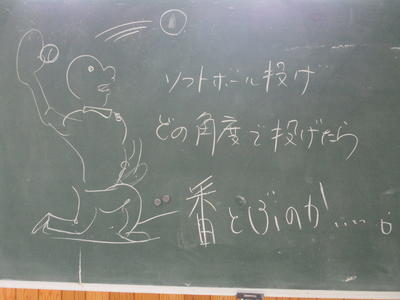 ソフトボール投げ
どの角度で投げたら
一番とぶのか……。